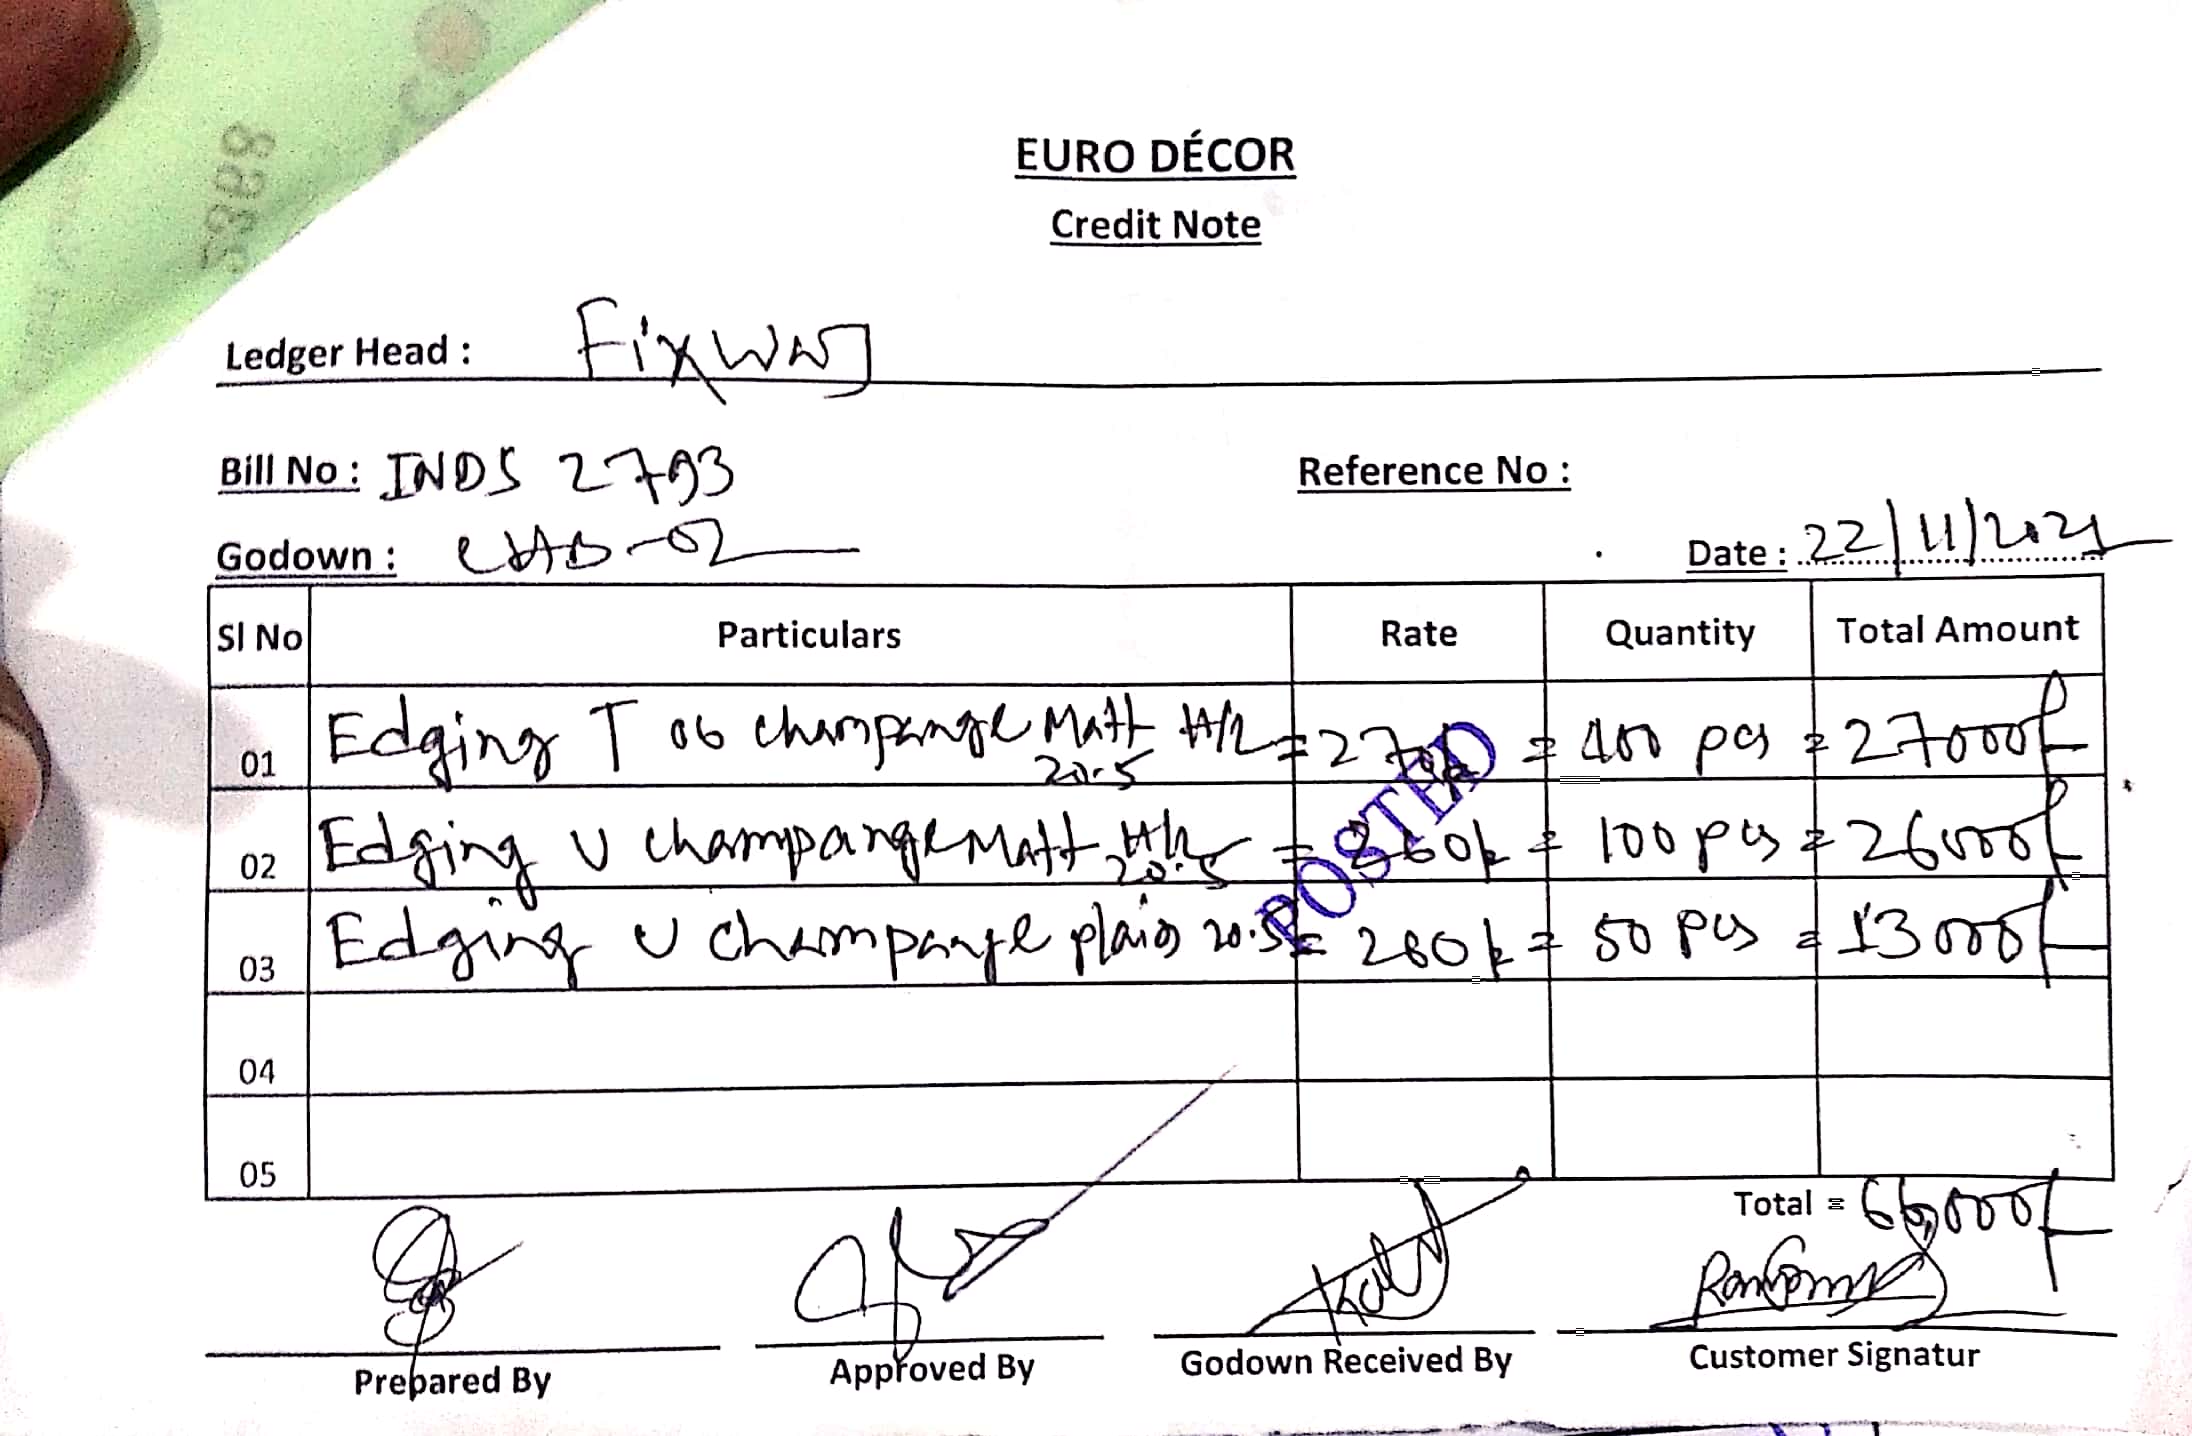 EURO DÉCOR
Credit Note
Ledger Head :
Bill No : INDS 2793 Reference No :
Godown : CHAD-02 Date : 22/11/2021
Sl No Particulars Rate Quantity Total Amount
01 Edging T 06 champange Matt H/R 20.5 = 270/- = 400 pcs = 27000/-
02 Edging U champange Matt H/R 20.5 = 260/- = 100 pcs = 26000/-
03 Edging U champange plain 20.5 = 260/- = 50 pcs = 13000/-
04
05
POSTED
Total = 66,000/-
Prepared By Approved By Godown Received By Customer Signatur